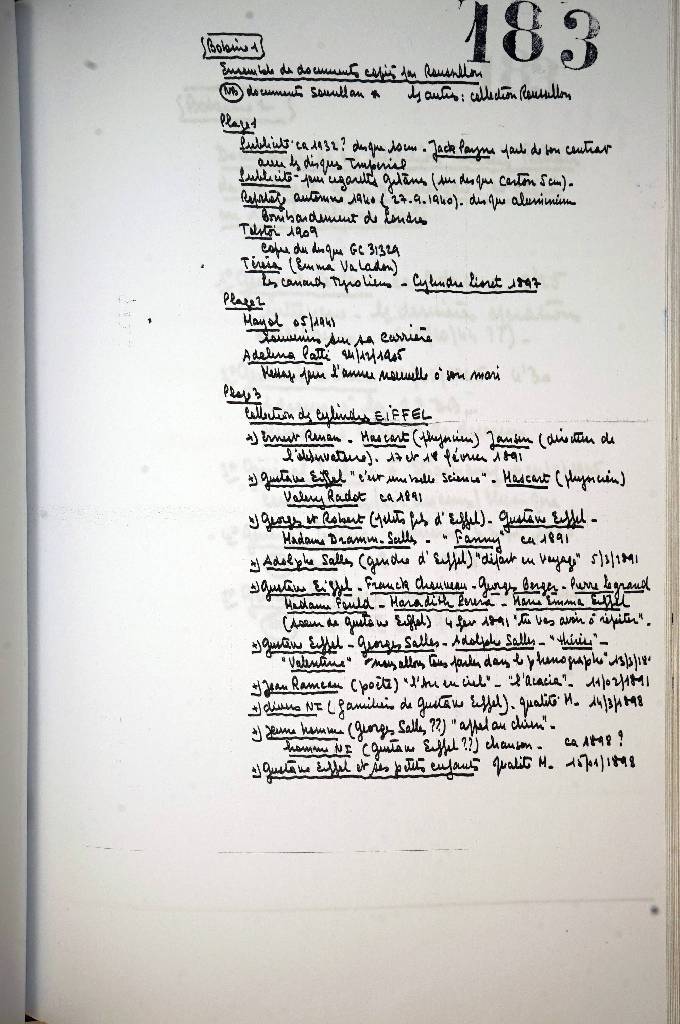 183
Bobine 1
Ensemble de documents copiés par Roussillon
NB documents Sourillan * les autres : collection Roussillon
Plage 1
Publicité ca 1932 ? disque 20cm - Jack Payne parle de son contrat
avec les disques Imperial
Publicité pour cigarettes gitanes (sur disque carton 5cm).
Reportage automne 1940 (27-9-1940). disque aluminium
Bombardement de Londres
Tolstoi 1909
Copie du disque GC 31329
Térésa (Emma Valadon)
Les canards Tyroliens - Cylindre Lioret 1897
Plage 2
Mayol 05/1941
Souvenirs sur sa carrière
Adelina Patti 24/12/1905
Message pour l'année nouvelle à son mari
Plage 3
Collection des cylindres EIFFEL
*) Ernest Renan - Mascart (physicien) Jansen (directeur de
l'observatoire). 17 et 18 février 1891
*) Gustave Eiffel "c'est une belle science" - Mascart (physicien)
Valery Radot ca 1891
*) Georges et Robert (petits fils d'Eiffel) - Gustave Eiffel -
Madame Dramm-Salles - "Fanny" ca 1891
*) Adolphe Salles (gendre d'Eiffel) "départ en voyage" 5/3/1891
*) Gustave Eiffel - Franck Chauveau - Georges Berger - Pierre Legrand
Madame Fould - Haradith Pereira - Marie Emma Eiffel
(soeur de Gustave Eiffel) 4 fev 1891 "tu vas avoir à répéter".
*) Gustave Eiffel - Georges Salles - Adolph Salles - "Thérèse" -
"Valentine" "nous allons tous parler dans le phonographe" 13/3/18
*) Jean Rameau (poète) "l'Arc en ciel" - "l'acacia" - 11/02/1891
*) divers NI (familiers de Gustave Eiffel). qualité M - 14/3/1898
*) Jeune homme (Georges Salles ??) "appel au chien" -
homme NI (Gustave Eiffel ??) chanson - ca 1898 ?
*) Gustave Eiffel et ses petits enfants qualité M - 15/01/1898